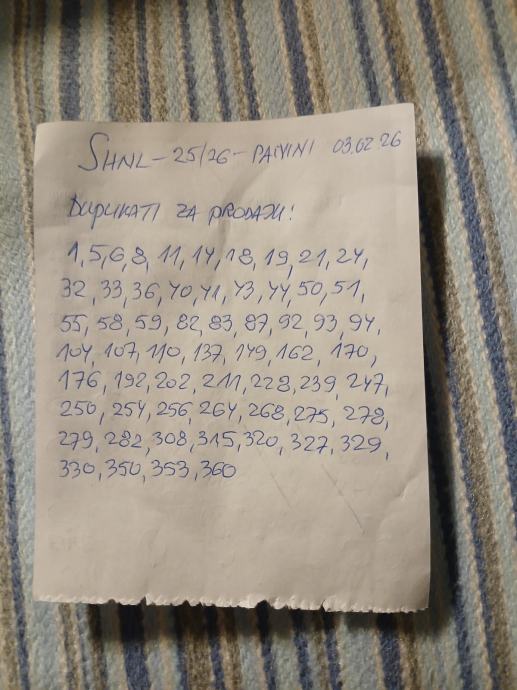 SHNL - 25/26 - PANINI 03.02 26
DUPLIKATI ZA PRODAJU!
1, 5, 6, 8, 11, 14, 18, 19, 21, 24,
32, 33, 36, 40, 41, 43, 44, 50, 51,
55, 58, 59, 82, 83, 87, 92, 93, 94,
104, 107, 110, 137, 149, 162, 170,
176, 192, 202, 211, 228, 239, 247,
250, 254, 256, 264, 268, 275, 278,
279, 282, 308, 315, 320, 327, 329,
330, 350, 353, 360